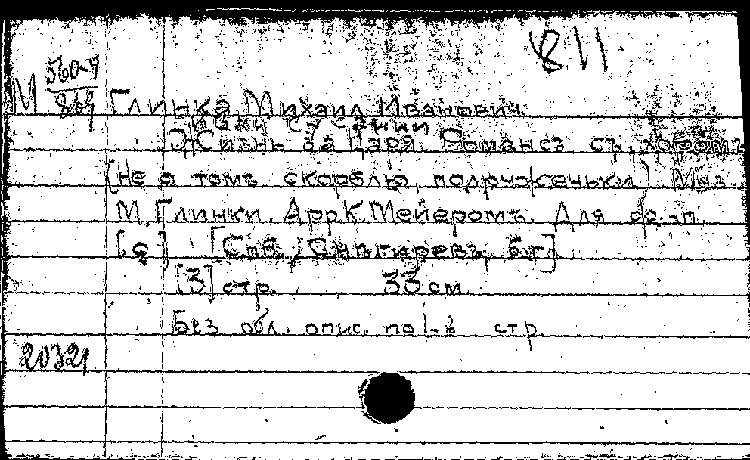 811
М 560-9
869
Глинка, Михаил Иванович.
Иван Сусанин
Жизнь за Царя. Романсъ съ хоромъ
(Не о томъ скорблю, подруженьки) Муз.
М. Глинки. Арр. К. Мейеромъ. Для ф.-п.
[СПб., Снигиревъ, б.г.]
[3] стр. 33 см.
Без обл. опис. по 1-й стр.
20321